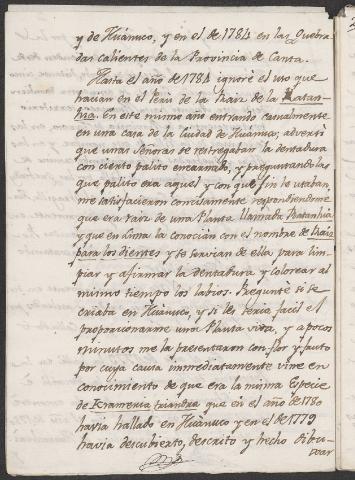 y de Huánuco, y en el de 1784 en las Quebra
das calientes de la Provincia de Canta.
Hasta el año de 1784 ignoré el uso que
hacian en el Perú de la Raiz de la Ratan-
hia. en este mismo año entrando casualmente
en una casa de la Ciudad de Huánuco, adverti
que unas Señoras se restregaban la dentadura
con cierto palito encarnado, y preguntandolas
que palito era aquel y con que fin le usaban,
me satisfacieron concisamente respondiendome
que era raiz de una Planta llamada Ratanhia
y que en Lima la conocian con el nombre de Raiz
para los dientes y se servian de ella para lim
piar y afirmar la dentadura y colorear al
mismo tiempo los labios. Pregunté si se
criaba en Huánuco, y si les seria facil el
proporcionarme una Planta viva, y a pocos
minutos me la presentaron con flor y fruto
por cuya causa inmediatamente vine en
conocimiento de que era la misma Especie
de Krameria triandra que en el año de 1780
havia hallado en Huánuco y en el de 1779
havia descubierto, descrito y hecho dibu-
xar